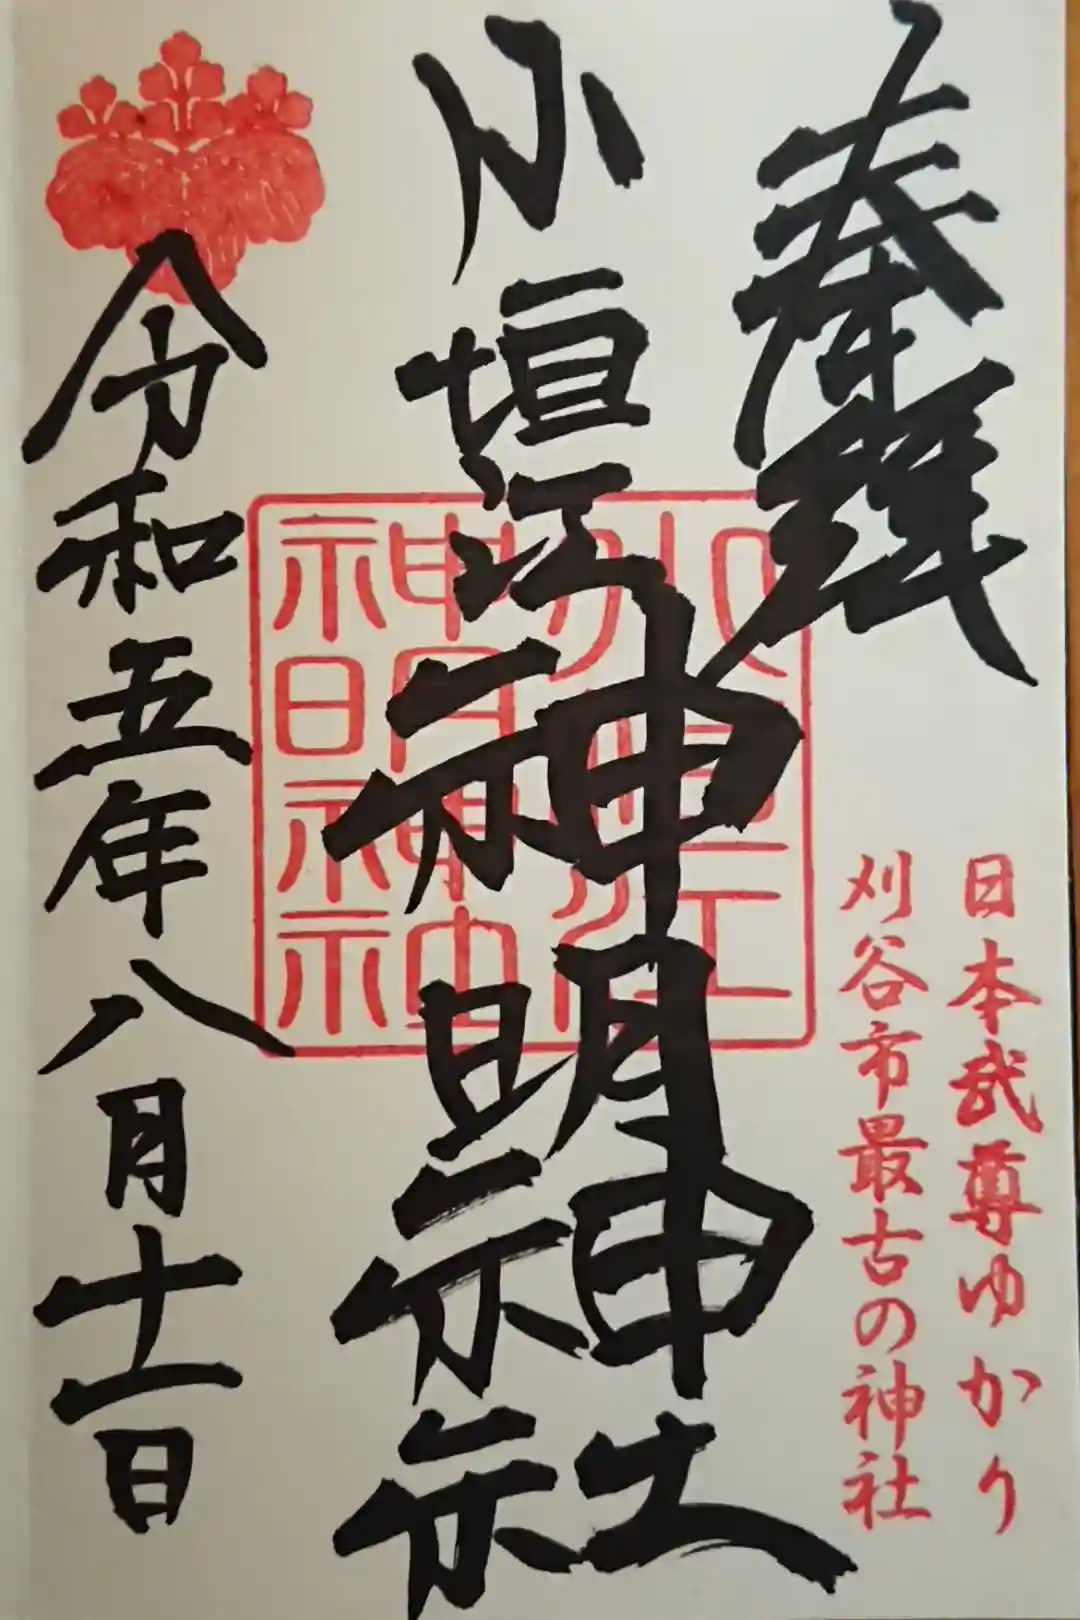 奉拝
日本武尊ゆかり
刈谷市最古の神社
小垣江神明神社
令和五年八月十一日